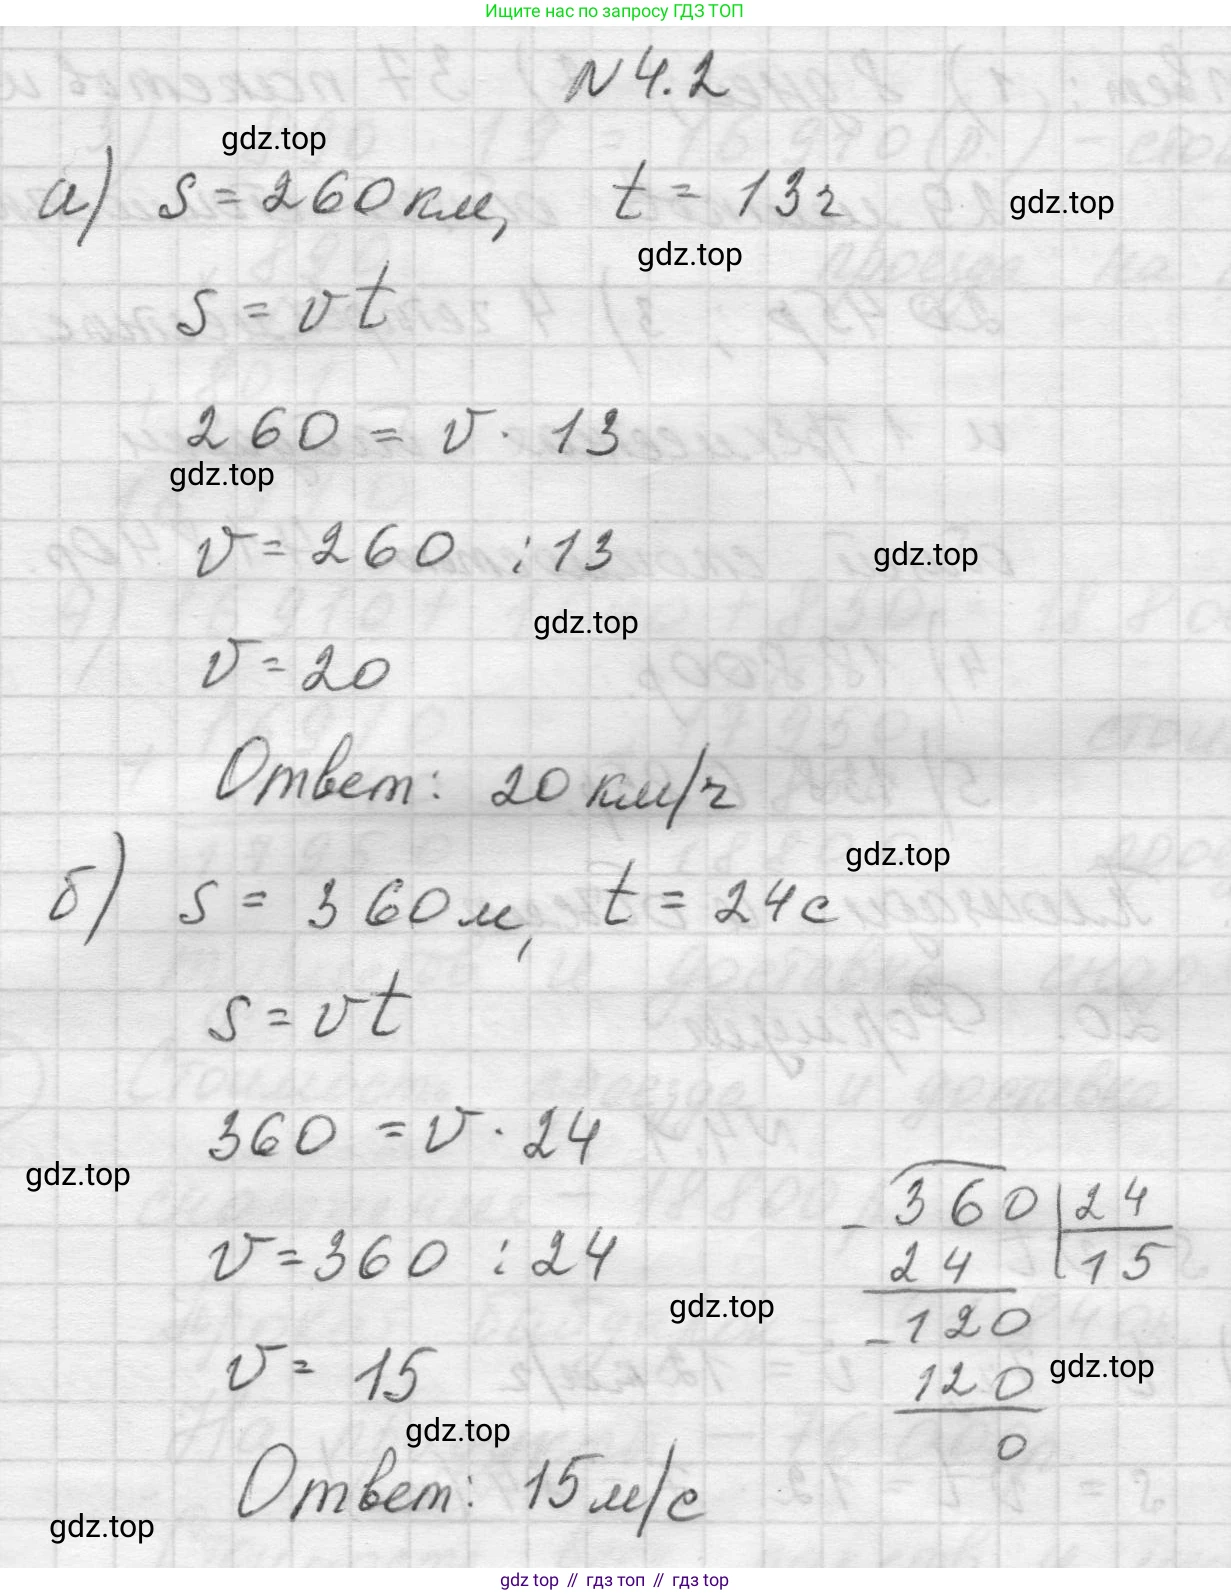 Ищите нас по запросу ГДЗ ТОП
N 4.2
gdz.top
а) s = 260 км, t = 13 ч
gdz.top
gdz.top
s = vt
260 = v · 13
gdz.top
v = 260 : 13
gdz.top
gdz.top
v = 20
Ответ: 20 км/ч
gdz.top
б) s = 360 м, t = 24 с
s = vt
360 = v · 24
gdz.top
- 360 | 24
24 15
v = 360 : 24
gdz.top
- 120
v = 15
120
gdz.top
gdz.top
0
Ответ: 15 м/с
gdz.top
gdz top // гдз топ // гдз top